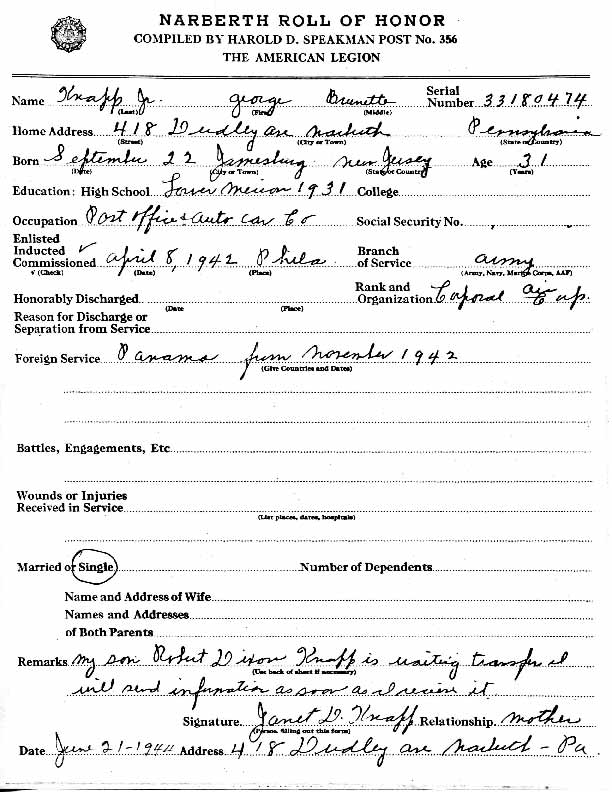 NARBERTH ROLL OF HONOR
COMPILED BY HAROLD D. SPEAKMAN POST No. 356
THE AMERICAN LEGION
Name Knapp Jr. George Brunette Serial Number 33180474
(Last) (First) (Middle)
Home Address 418 Dudley ave Narberth Pennsylvania
(Street) (City or Town) (State or Country)
Born September 22 Jamesburg New Jersey Age 31
(Date) (City or Town) (State or Country) (Years)
Education: High School Lower Merion 1931 College
Occupation Post office & Auto car Co Social Security No.
Enlisted
Inducted ✓
Commissioned April 8, 1942 Phila Branch of Service Army
✓ (Check) (Date) (Place) (Army, Navy, Marine Corps, AAF)
Honorably Discharged Rank and Organization Corporal air
(Date (Place)
Reason for Discharge or
Separation from Service
Foreign Service Panama from November 1942
(Give Countries and Dates)
Battles, Engagements, Etc
Wounds or Injuries
Received in Service
(List places, dates, hospitals)
Married or Single Number of Dependents
Name and Address of Wife
Names and Addresses
of Both Parents
Remarks My son Robert Dixon Knapp is waiting transfer I
(Use back of sheet if necessary)
will send information as soon as I receive it
Signature Janet D. Knapp Relationship Mother
(Person filling out this form)
Date June 21-1944 Address 418 Dudley ave Narberth - Pa